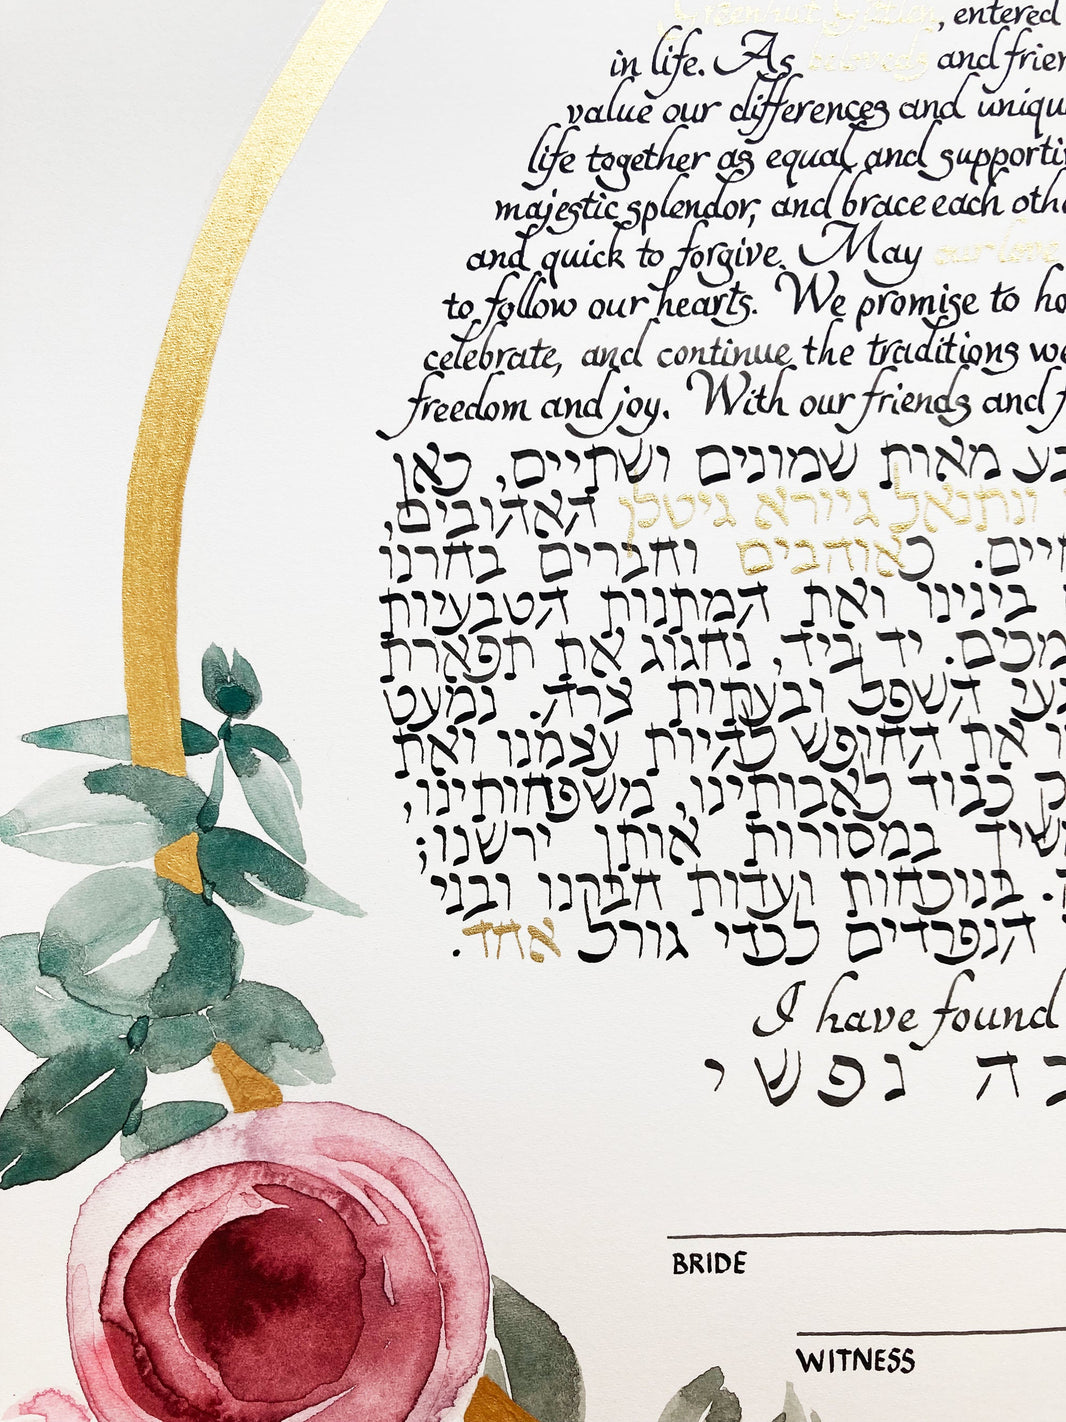 , entered
in life. As beloveds and frien
value our differences and uniqu
life together as equal and supporti
majestic splendor, and brace each othe
and quick to forgive. May our love
to follow our hearts. We promise to ho
celebrate, and continue the traditions we
freedom and joy. With our friends and f
בע מאות שמונים ושתיים, כאן
ונתנאל גיורא גיטלן האהובים,
חיים. כאוהבים וחברים בחרנו
בינינו ואת המתנות הטבעיות
מכים. יד ביד, נחגוג את תפארת
געי השפל ובעתות צרה. נמעט
ו את החופש להיות עצמנו ואת
ק כבוד לאבותינו, משפחותינו,
משיך במסורות אותן ירשנו;
ה. בנוכחות ועדות חבקנו ובני
הנפרדים לכדי גורל אחד.
I have found
בה נפשי
BRIDE
WITNESS